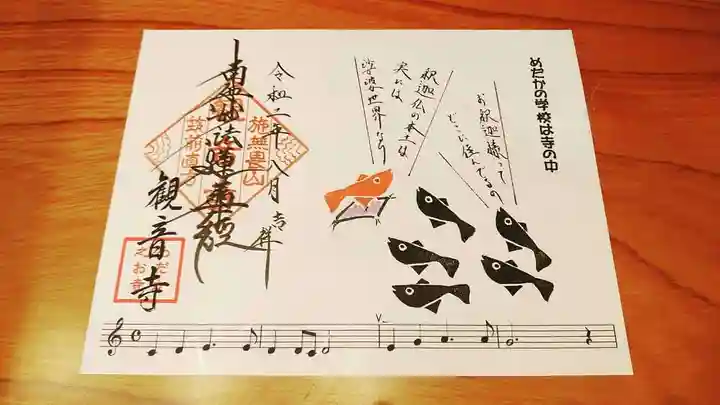 めだかの学校は寺の中
お釈迦様って
どこに住んでるの
釈迦仏の本土は
実には
娑婆世界なり
令和二年八月吉祥
南無妙法蓮華経
施無畏山
観音寺
めだか
之お寺